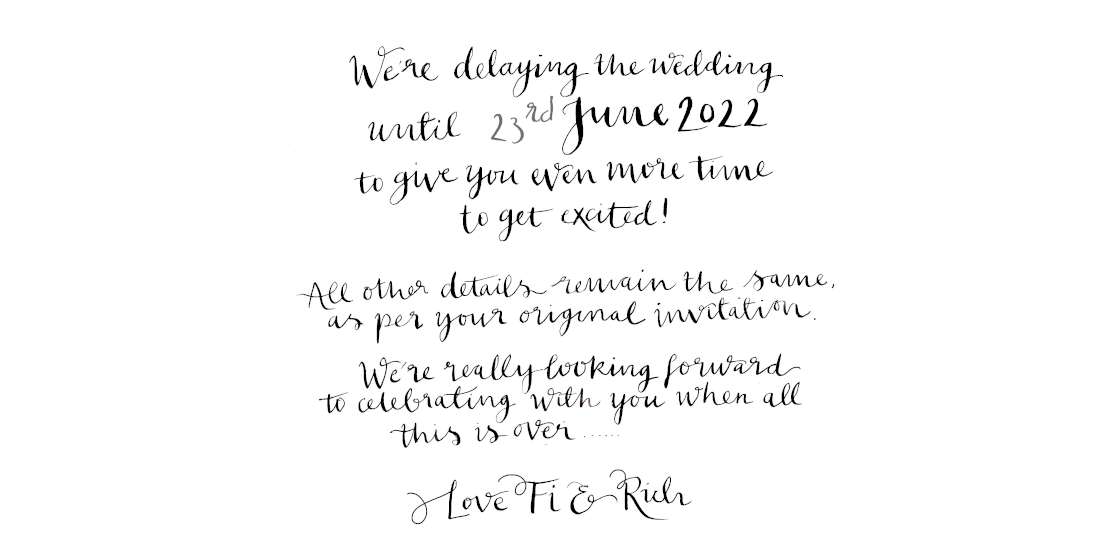 We're delaying the wedding
until 23rd June 2022
to give you even more time
to get excited!
All other details remain the same,
as per your original invitation.
We're really looking forward
to celebrating with you when all
this is over ......
Love Fi & Rich